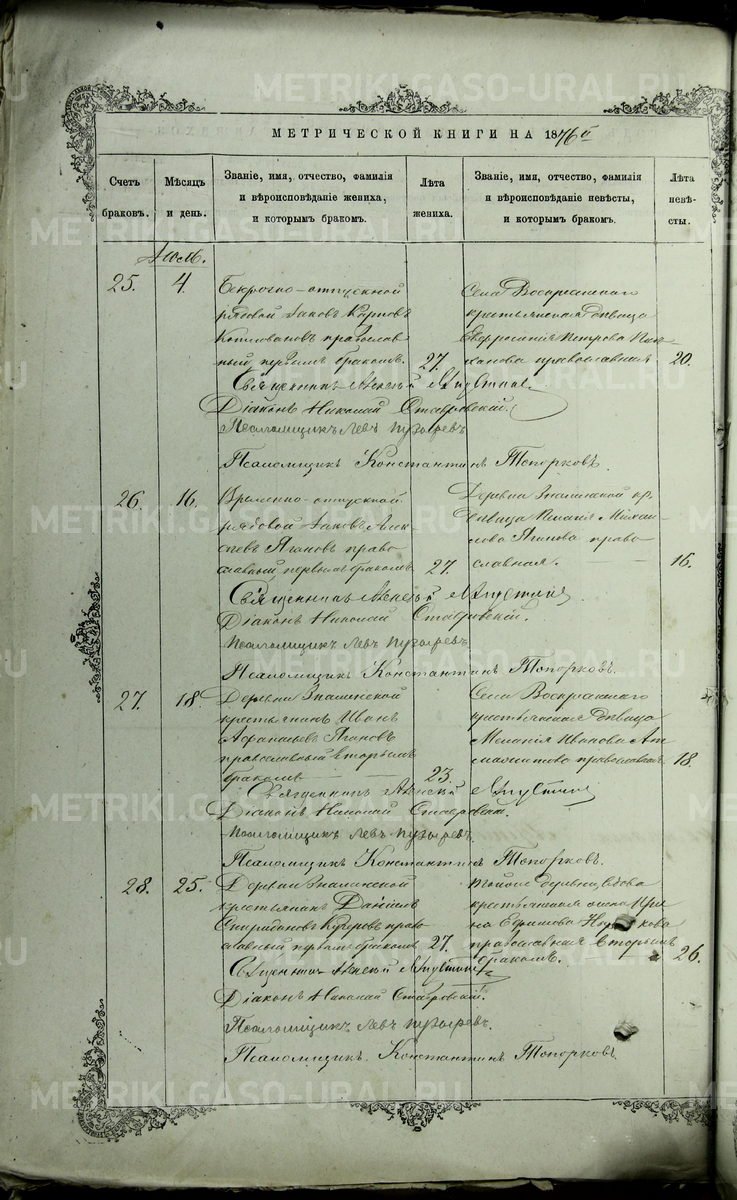 МЕТРИЧЕСКОЙ КНИГИ НА 1876 й
Счетъ браковъ.
Мѣсяцъ и день.
Званіе, имя, отчество, фамилія
и вѣроисповѣданіе жениха,
и которымъ бракомъ.
Лѣта
жениха.
Званіе, имя, отчество, фамилія
и вѣроисповѣданіе невѣсты,
и которымъ бракомъ.
Лѣта
невѣ-
сты.
25. 4.
Безсрочно-отпускной
рядовой Іаковъ Карповъ
православ-
ный, первымъ бракомъ. 27.
Села Воскресенскаго
крестьянская дѣвица
Евфросинія Петрова
православная 20.
Священникъ Алексѣй
Діаконъ Николай Ставровскій.
Псаломщикъ Левъ Пузыревъ
Псаломщикъ Константинъ Топорковъ.
26. 16.
Временно-отпускной
рядовой Іаковъ Алек-
сѣевъ Ягановъ право-
славный первымъ бракомъ 27.
Деревни кр.
дѣвица Пелагія Михаи-
лова Яганова право-
славная. 16.
Священникъ Алексѣй
Діаконъ Николай Ставровскій.
Псаломщикъ Левъ Пузыревъ
Псаломщикъ Константинъ Топорковъ.
27. 18.
Деревни
крестьянинъ Иванъ
Афанасьевъ Ягановъ
православный вторымъ
бракомъ 23.
Села Воскресенскаго
крестьянская дѣвица
Меланія Иванова
православная 18
Священникъ Алексѣй
Діаконъ Николай Ставровскій.
Псаломщикъ Левъ Пузыревъ.
Псаломщикъ Константинъ Топорковъ.
28. 25.
Деревни
крестьянинъ Даніилъ
Спиридоновъ право-
славный первымъ бракомъ 27.
Тойже деревни вдова
крестьянская жена Ири-
на Ефимова
православная вторымъ
бракомъ. 26.
Священникъ Алексѣй
Діаконъ Николай Ставровскій.
Псаломщикъ Левъ Пузыревъ.
Псаломщикъ Константинъ Топорковъ.
METRIKI.GASO-URAL.RU